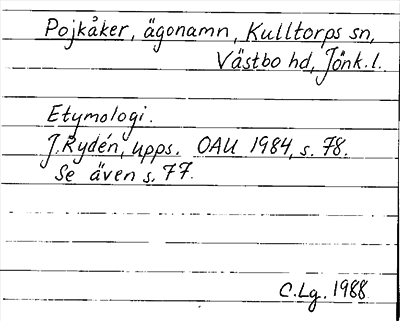 Pojkåker, ägonamn, Kulltorps sn,
Västbo hd, Jönk. l.
Etymologi.
J. Rydén, upps. OAU 1984, s. 78.
Se även s. 77.
C. Lg. 1988